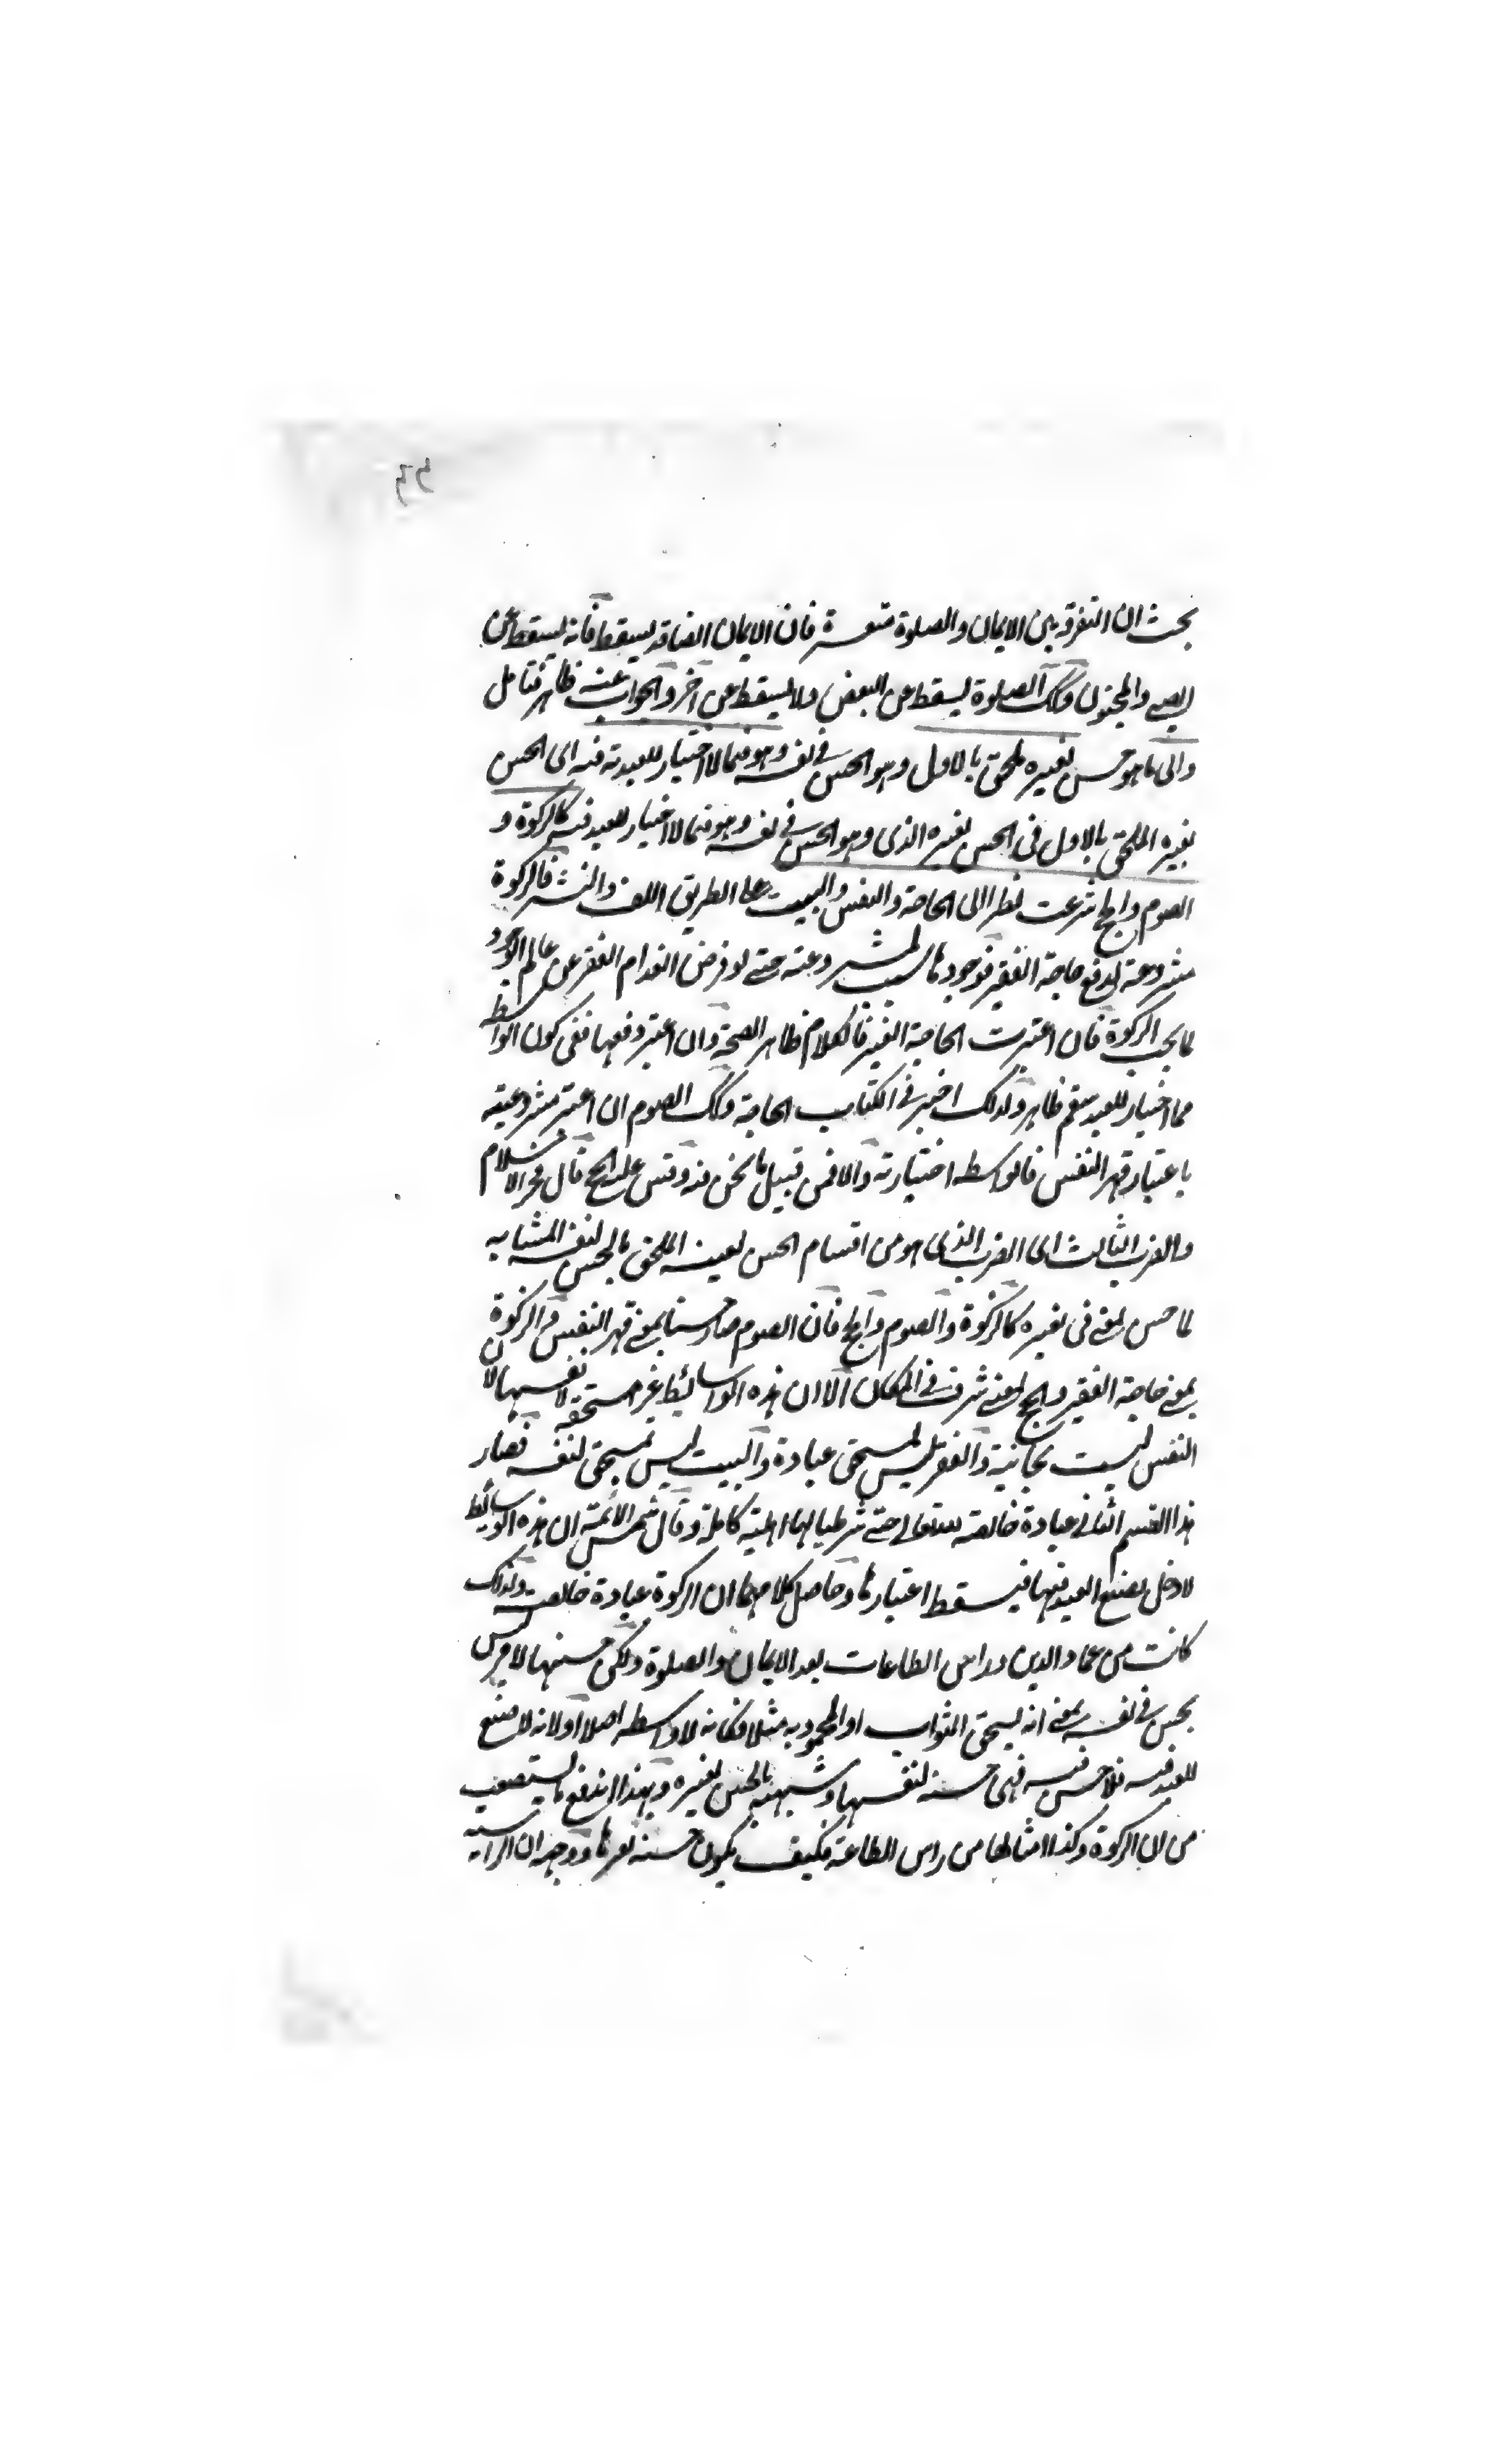 بحث ان التفرقة بين الايمان والصلوة متعسرة فان الايمان ايضا قد يسقط فانه يسقط عن
الصبي والمجنون وكك الصلوة يسقط عن البعض ولا يسقط عن آخر والجواب عنه ظاهر فتامل
والى ما هو حسن لغيره ملحق بالاول وهو الحسن في نفسه وهو فيما لا اختيار للعبد فيه اى الحسن
لغيره الملحق بالاول في الحسن لغيره الذى وهو الحسن في نفسه وهو فيما لا اختيار للعبد فيه كالزكوة و
الصوم والحج شرعت نظرا الى الحاجة والنفس والبيت على الطريق اللف والنشر فالزكوة
مشروعة لدفع حاجة الفقير فوجودها سبب لمشروعته حتى لو فرض انعدام الفقر عن عالم الوجود
لما يجب الزكوة فان اعتبرت الحاجة الفقير فالكلام ظاهر الصحة وان اعتبر دفعها ففى كون الواسطة
مما اختيار للعبد سقم ظاهر ولذلك اختير في الكتاب الحاجة وكك الصوم ان اعتبر مشروعيته
باعتبار قهر النفس فالواسطه اختيارية والا فمن قبيل ما نحن فيه وقس عليه الحج قال فخر الاسلام
والضرب الثالث اى الضرب الذى هو من اقسام الحسن لعينه الملحق بالحسن لنفسه المشابه
لما حسن لمعنى في غيره كالزكوة والصوم والحج فان الصوم صار حسنا لمعنى قهر النفس والزكوة
لمعنى حاجة الفقير والحج لمعنى شرف في المكان الا ان هذه الوسائط غير مستحقة لانفسها لان
النفس ليست بجانية والفقر ليس لمستحق عبادة والبيت ليس بمستحق لنفسه فصار
هذا القسم الثانى عبادة خالصة لله تعالى حتى شرطيا لها اهلية كاملة وقال شمس الائمة ان هذه الوسائط
لا دخل لصنع العبد فيها فيسقط اعتبارها وحاصل كلامهما ان الزكوة عبادة خالصة ولذلك
كانت من عماد الدين وراس الطاعات بعد الايمان والصلوة ولكن حسنها لامر ليس
بحسن في نفسه بمعنى انه يستحق الثواب او المحمود به مثلا فكانه لا واسطه اصلا او لانه لا صنع
للعبد فيه فلا حسن فيه فهى حسنة لنفسها وشبيهة بالحسن لغيره وبهذا اندفع ما يستصعب
من ان الزكوة وكذا امثالها من راس الطاعة فكيف يكون حسنه لغيرها ووجه ان الراسية